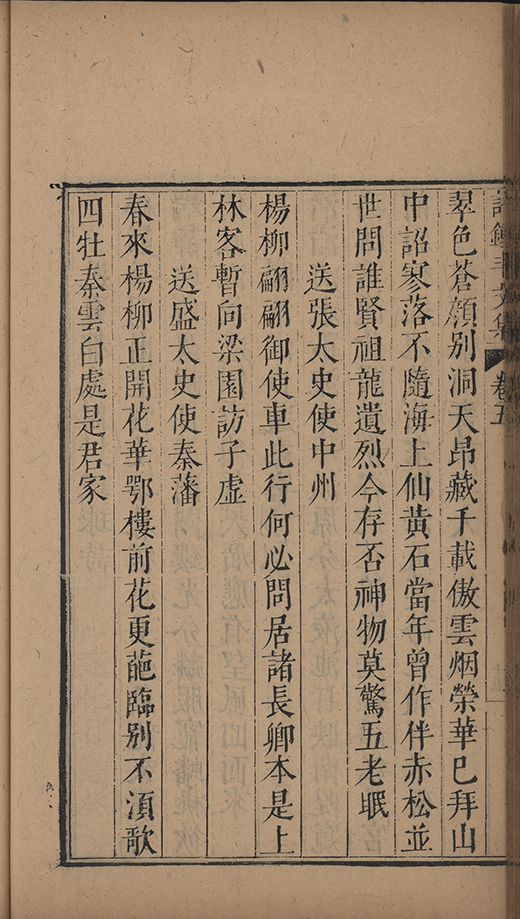 許鍾斗文集 卷五
翠色蒼顏別洞天昂藏千載傲雲烟榮華已拜山
中詔寥落不隨海上仙黃石當年曾作伴赤松並
世問誰賢祖龍遺烈今存否神物莫驚五老眠
送張太史使中州
楊柳翩翩御使車此行何必問居諸長卿本是上
林客暫向梁園訪子虛
送盛太史使秦藩
春來楊柳正開花華鄂樓前花更葩臨別不湏歌
四牡秦雲白處是君家